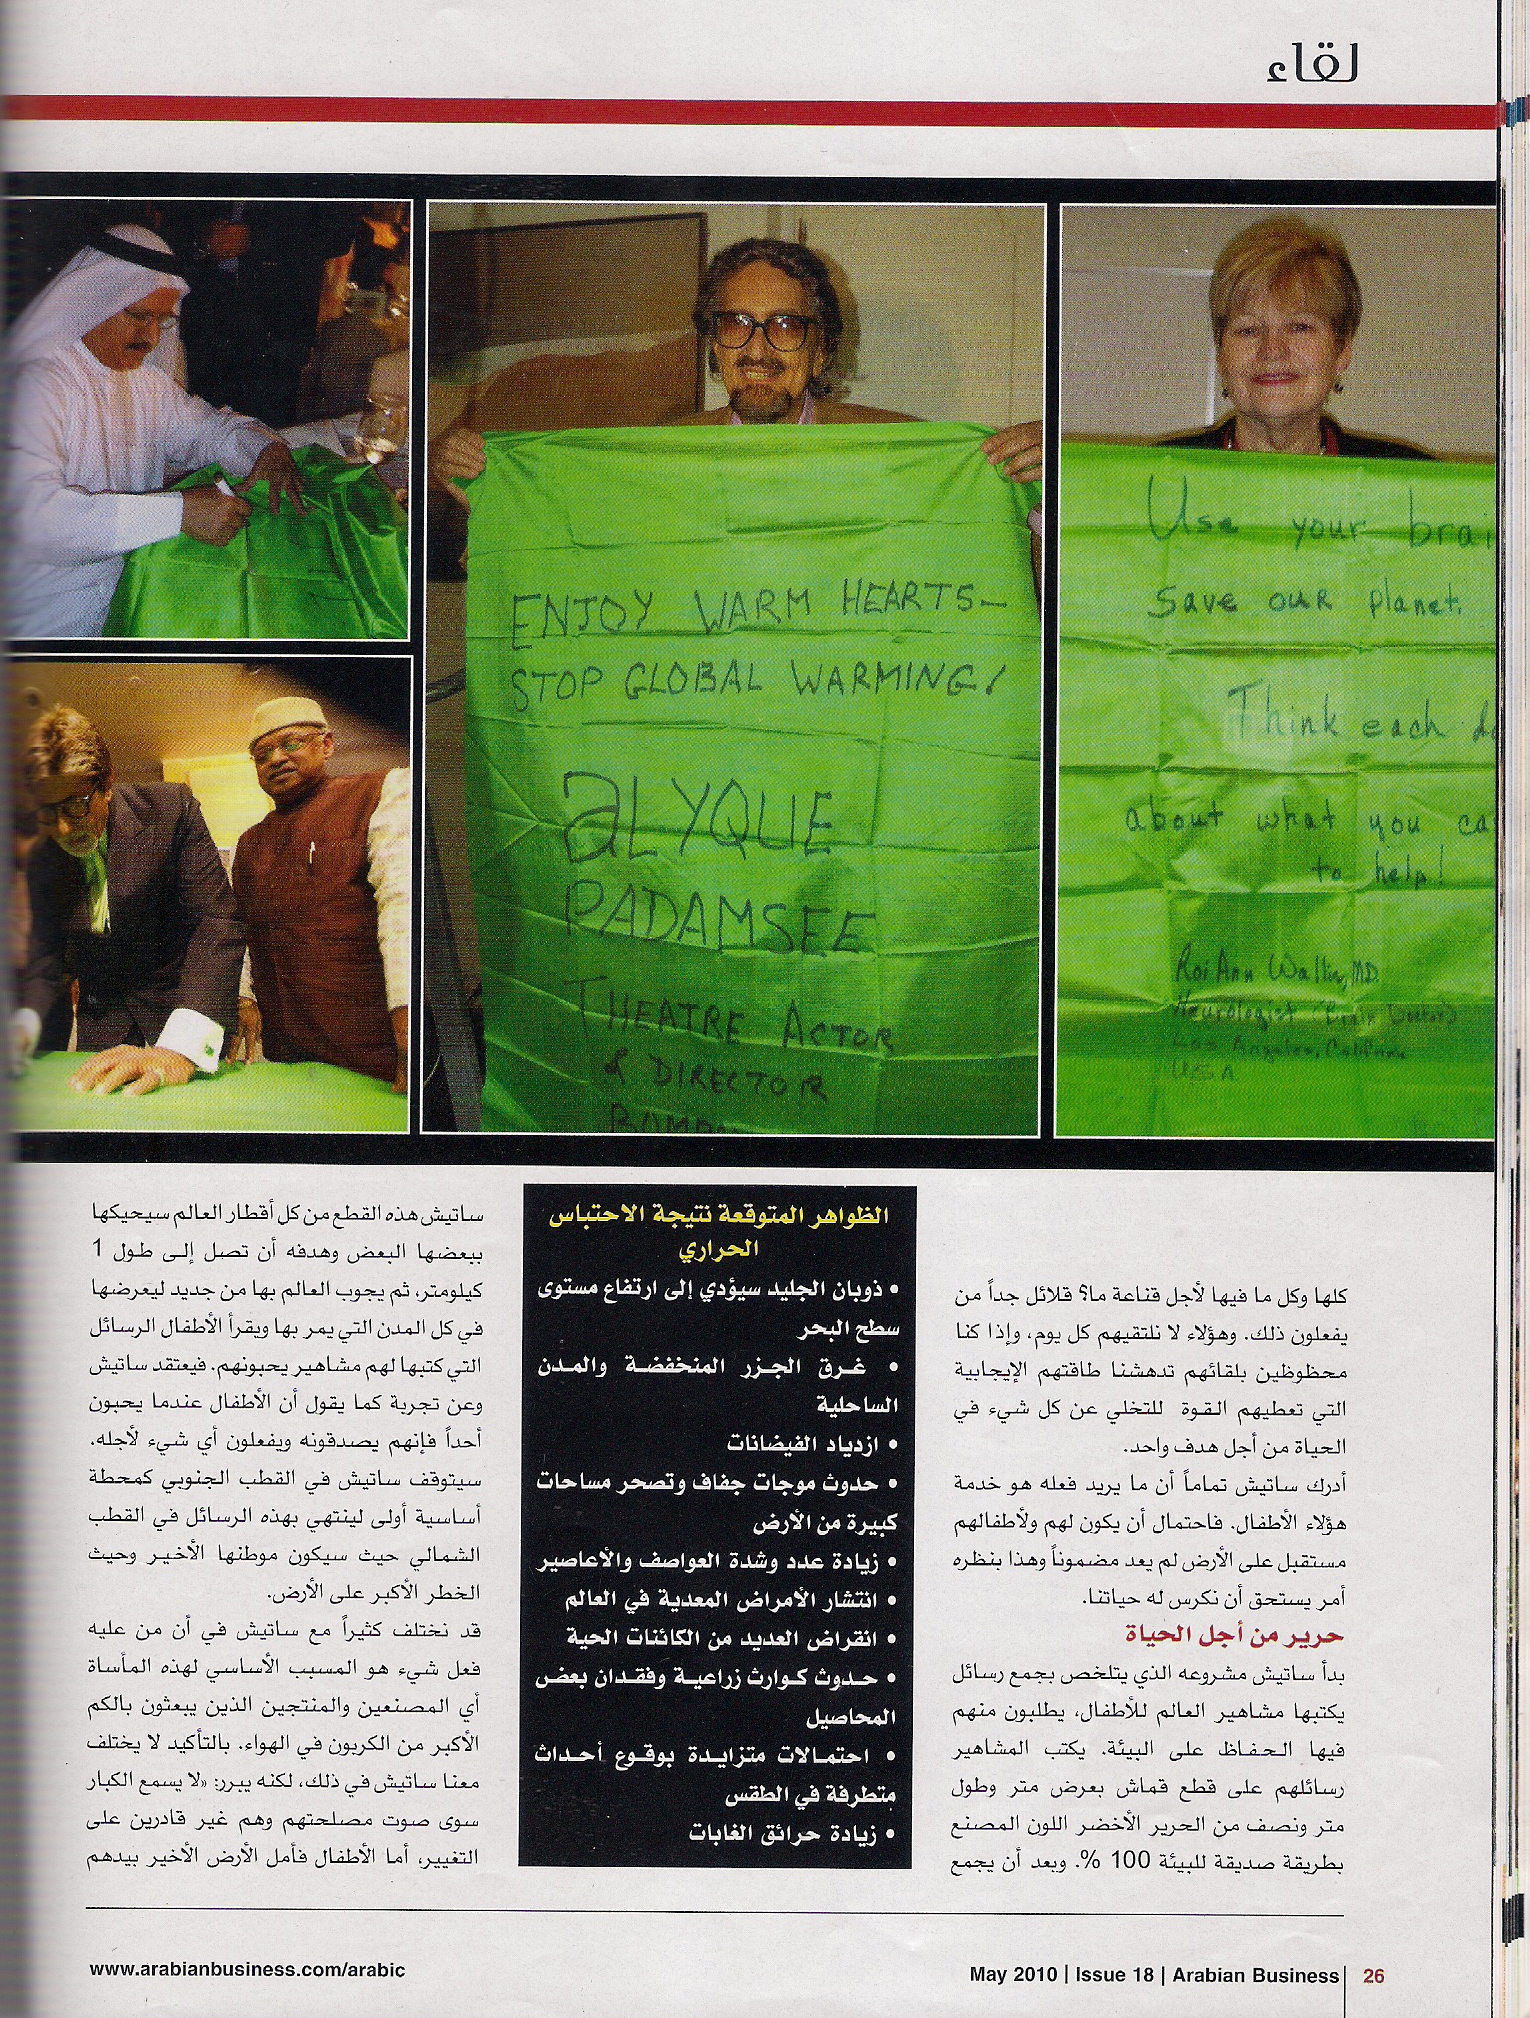 لقاء
ENJOY WARM HEARTS-
STOP GLOBAL WARMING!
aLYQUE
PADAMSEE
THEATRE ACTOR
& DIRECTOR
Use your brai
save our planet.
Think each
about what you ca
to help!
RoiAnn Wallis, M.D.
Neurologist (Brain Doctor)
Los Angeles, California
USA
كلها وكل ما فيها لأجل قناعة ما؟ قلائل جداً من
يفعلون ذلك. وهؤلاء لا نلتقيهم كل يوم، وإذا كنا
محظوظين بلقائهم تدهشنا طاقتهم الإيجابية
التي تعطيهم القوة للتخلي عن كل شيء في
الحياة من أجل هدف واحد.
أدرك ساتيش تماماً أن ما يريد فعله هو خدمة
هؤلاء الأطفال. فاحتمال أن يكون لهم ولأطفالهم
مستقبل على الأرض لم يعد مضموناً وهذا بنظره
أمر يستحق أن نكرس له حياتنا.
حرير من أجل الحياة
بدأ ساتيش مشروعه الذي يتلخص بجمع رسائل
يكتبها مشاهير العالم للأطفال، يطلبون منهم
فيها الحفاظ على البيئة. يكتب المشاهير
رسائلهم على قطع قماش بعرض متر وطول
متر ونصف من الحرير الأخضر اللون المصنع
بطريقة صديقة للبيئة 100 %. وبعد أن يجمع
الظواهر المتوقعة نتيجة الاحتباس
الحراري
• ذوبان الجليد سيؤدي إلى ارتفاع مستوى
سطح البحر
• غرق الجزر المنخفضة والمدن
الساحلية
• ازدياد الفيضانات
• حدوث موجات جفاف وتصحر مساحات
كبيرة من الأرض
• زيادة عدد وشدة العواصف والأعاصير
• انتشار الأمراض المعدية في العالم
• انقراض العديد من الكائنات الحية
• حدوث كوارث زراعية وفقدان بعض
المحاصيل
• احتمالات متزايدة بوقوع أحداث
متطرفة في الطقس
• زيادة حرائق الغابات
ساتيش هذه القطع من كل أقطار العالم سيحيكها
ببعضها البعض وهدفه أن تصل إلى طول 1
كيلومتر، ثم يجوب العالم بها من جديد ليعرضها
في كل المدن التي يمر بها ويقرأ الأطفال الرسائل
التي كتبها لهم مشاهير يحبونهم. فيعتقد ساتيش
وعن تجربة كما يقول أن الأطفال عندما يحبون
أحداً فإنهم يصدقونه ويفعلون أي شيء لأجله.
سيتوقف ساتيش في القطب الجنوبي كمحطة
أساسية أولى لينتهي بهذه الرسائل في القطب
الشمالي حيث سيكون موطنها الأخير وحيث
الخطر الأكبر على الأرض.
قد نختلف كثيراً مع ساتيش في أن من عليه
فعل شيء هو المسبب الأساسي لهذه المأساة
أي المصنعين والمنتجين الذين يبعثون بالكم
الأكبر من الكربون في الهواء. بالتأكيد لا يختلف
معنا ساتيش في ذلك، لكنه يبرر: «لا يسمع الكبار
سوى صوت مصلحتهم وهم غير قادرين على
التغيير، أما الأطفال فأمل الأرض الأخير بيدهم
www.arabianbusiness.com/arabic
May 2010 | Issue 18 | Arabian Business | 26